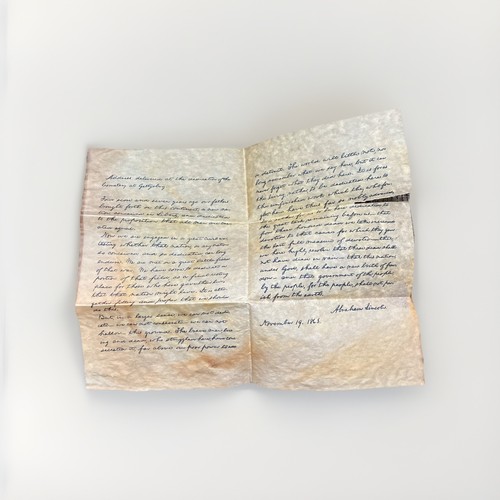 Address delivered at the dedication of the
Cemetery at Gettysburg.
Four score and seven years ago our fathers
brought forth on this continent, a new na-
tion, conceived in Liberty, and dedicated
to the proposition that all men are cre-
ated equal.
Now we are engaged in a great civil war,
testing whether that nation, or any nation
so conceived and so dedicated, can long
endure. We are met on a great battle-field
of that war. We have come to dedicate a
portion of that field, as a final resting
place for those who here gave their lives
that that nation might live. It is alto-
gether fitting and proper that we should do
this.
But, in a larger sense, we can not dedi-
cate— we can not consecrate— we can not
hallow— this ground. The brave men, liv-
ing and dead, who struggled here, have con-
secrated it, far above our poor power to add
or detract. The world will little note, nor
long remember what we say here, but it can
never forget what they did here. It is for us
the living, rather, to be dedicated here to
the unfinished work which they who fou-
ght here have thus far so nobly advanced.
the great task remaining before us— that
from these honored dead we take increased
devotion to that cause for which they gave
the last full measure of devotion— that
we here highly resolve that these dead shall
not have died in vain— that this nation,
under God, shall have a new birth of free-
dom— and that government of the people,
by the people, for the people, shall not per-
ish from the earth.
Abraham Lincoln.
November 19, 1863.